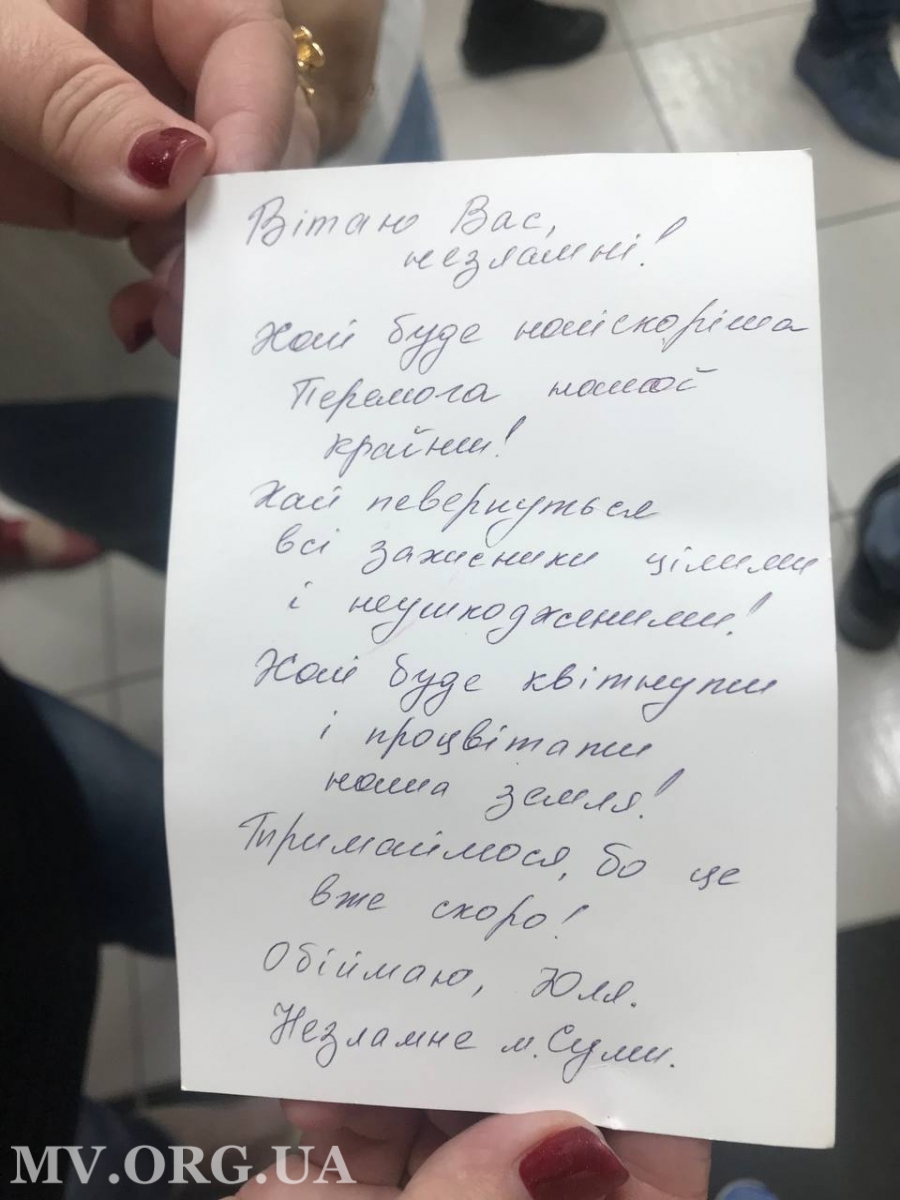 Вітаю Вас,
незламні!
Хай буде найскоріша
Перемога нашої
країни!
Хай повернуться
всі захисники цілими
і неушкодженими!
Хай буде квітнути
і процвітати
наша земля!
Тримаймося, бо це
вже скоро!
Обіймаю, Юля.
Незламне м. Суми.
MV.ORG.UA